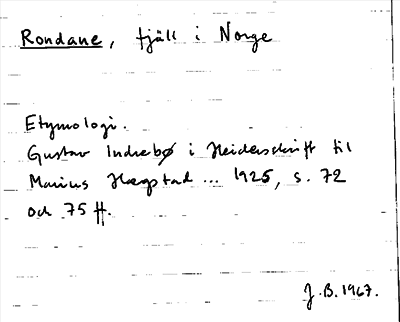 Rondane, fjäll i Norge
Etymologi.
Gustav Indrebø i Heiderskrift til
Marius Hægstad ... 1925, s. 72
och 75 ff.
J.B. 1967.